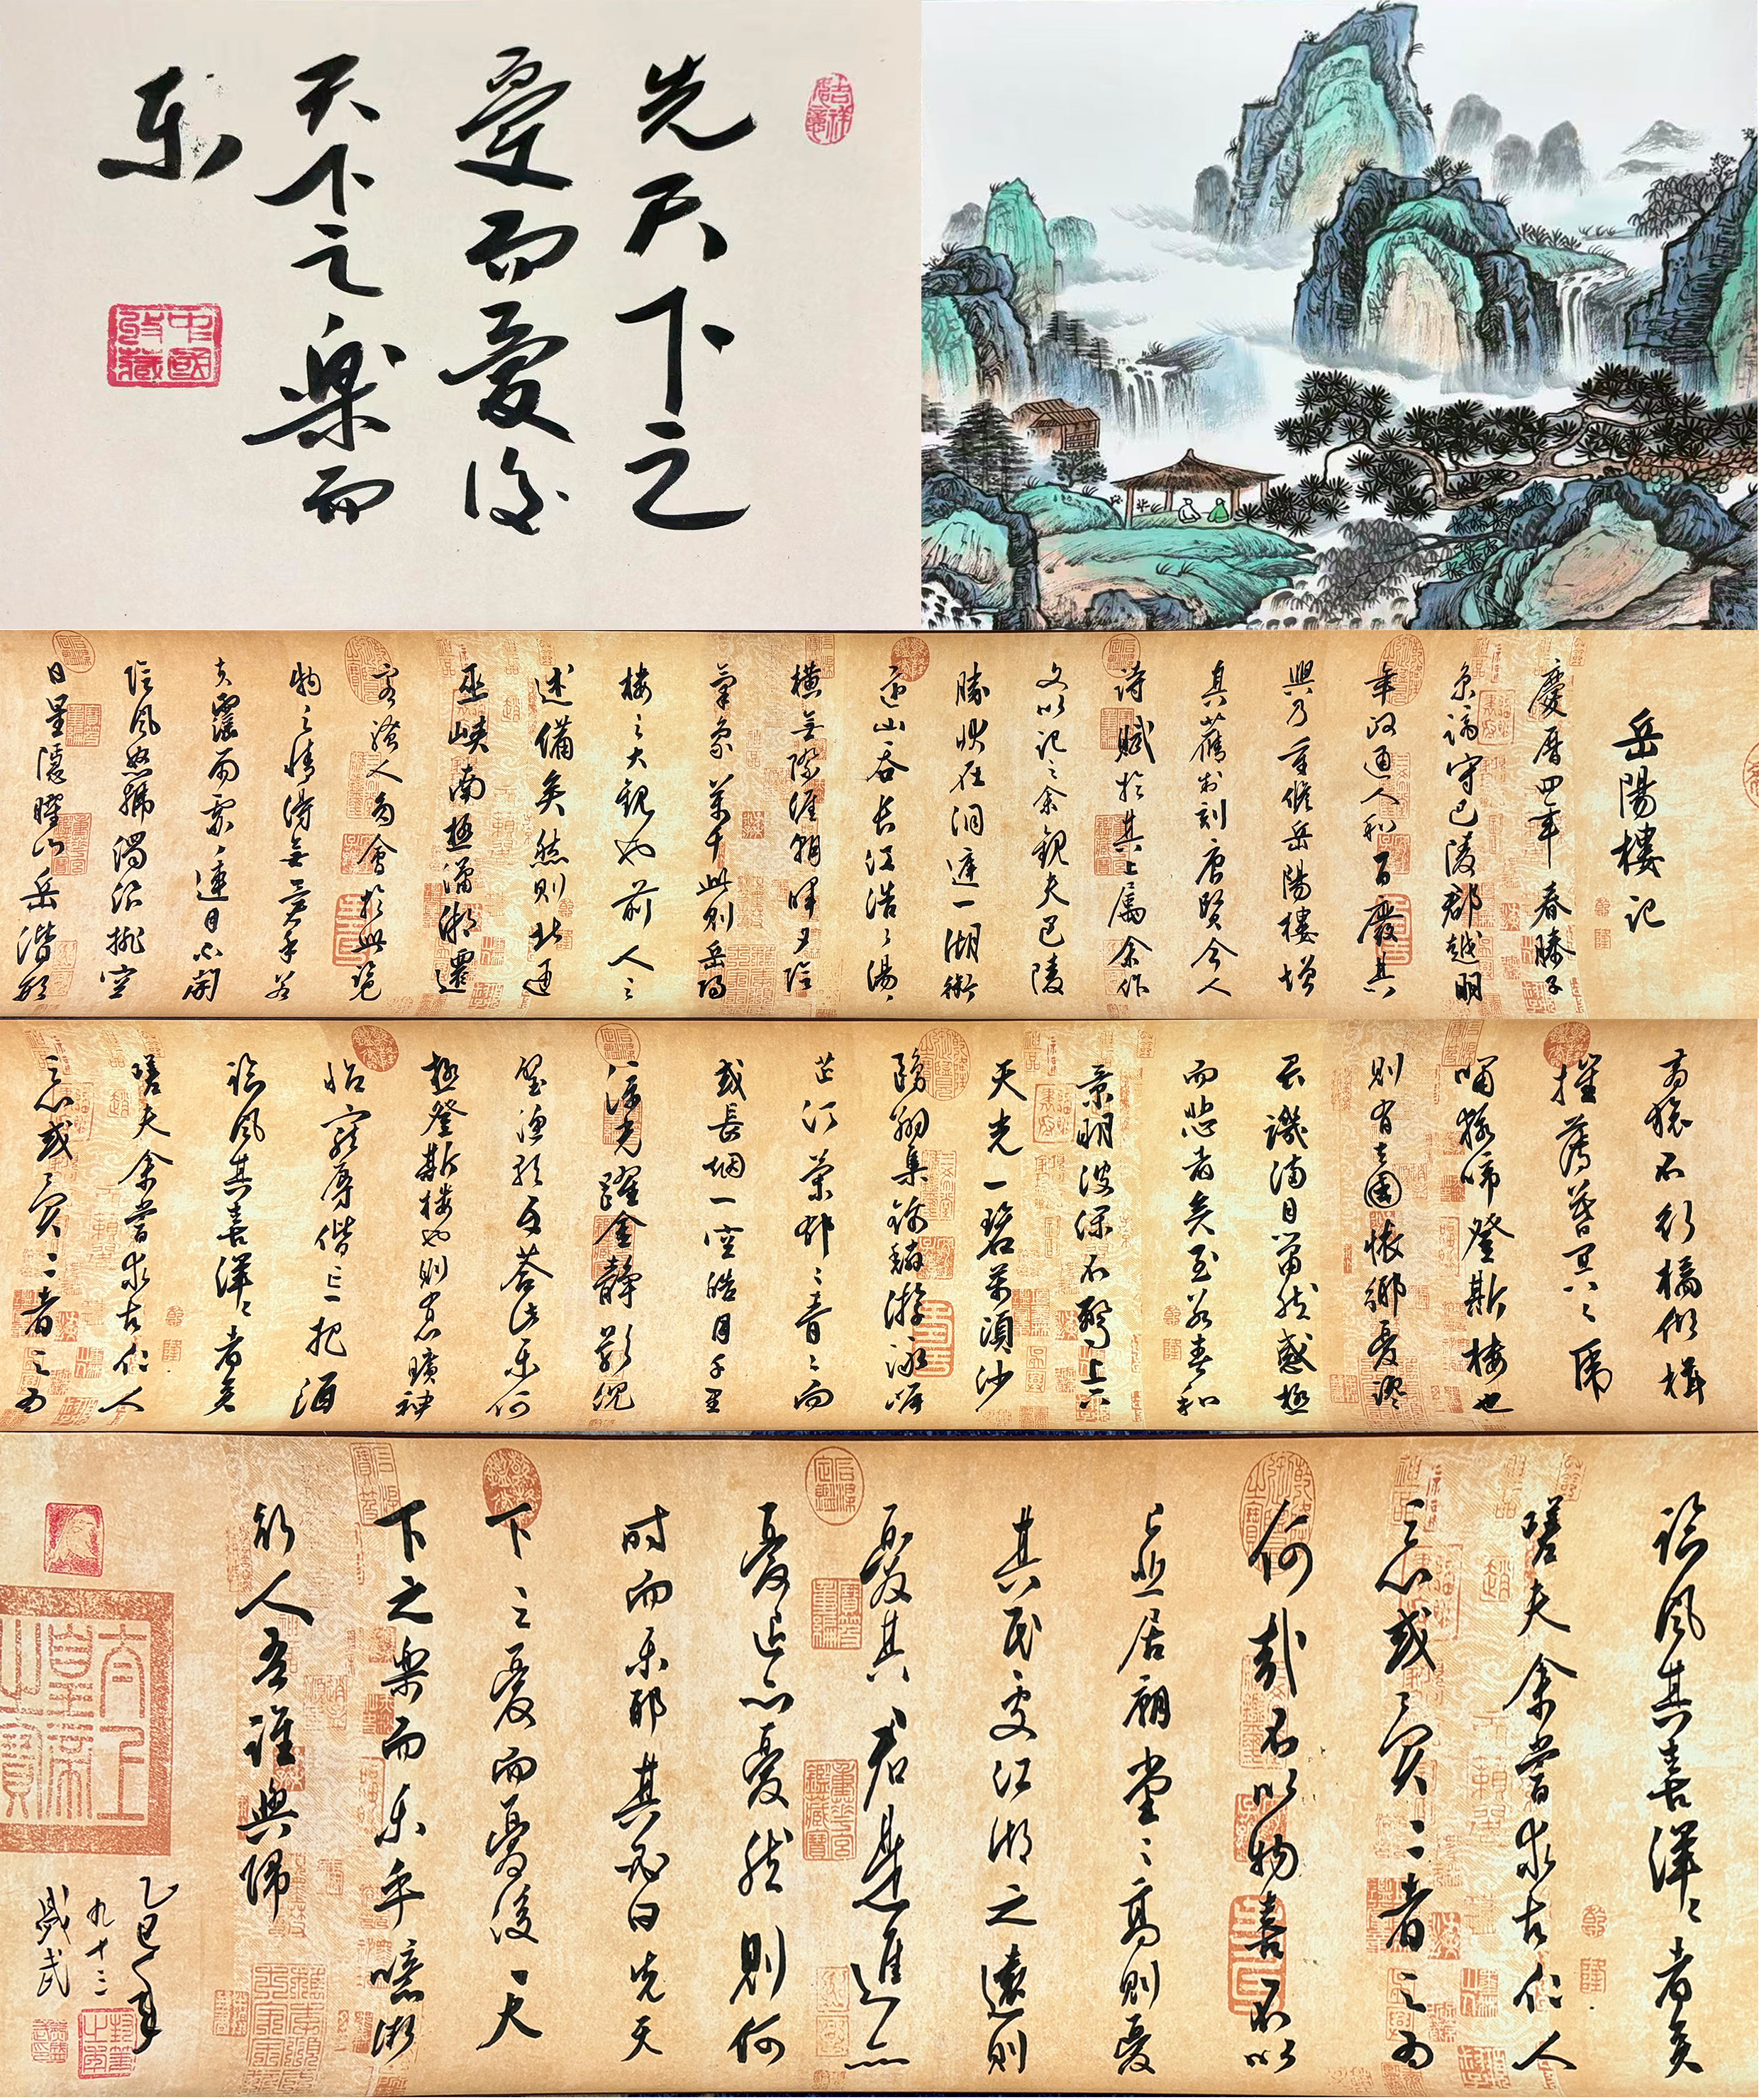 先天下之
憂而憂後
天下之樂而
乐
中國收藏
岳陽樓記
慶曆四年春滕子
京謫守巴陵郡越明
年政通人和百廢具
興乃重修岳陽樓增
其舊制刻唐賢今人
詩賦於其上屬余作
文以記之余觀夫巴陵
勝狀在洞庭一湖銜
遠山吞長江浩浩湯湯
橫無際涯朝暉夕陰
氣象萬千此則岳陽
樓之大觀也前人之
述備矣然則北通
巫峽南極瀟湘遷
客騷人多會於此覽
物之情得無異乎若
夫霪雨霏霏連月不開
陰風怒號濁浪排空
日星隱曜山岳潛形
商旅不行檣傾楫
摧薄暮冥冥虎
嘯猿啼登斯樓也
則有去國懷鄉憂讒
畏譏滿目蕭然感極
而悲者矣至若春和
景明波瀾不驚上下
天光一碧萬頃沙
鷗翔集錦鱗游泳岸
芷汀蘭郁郁青青而
或長烟一空皓月千里
浮光躍金靜影沉
璧漁歌互答此乐何
極登斯樓也則有心曠神
怡寵辱偕忘把酒
臨風其喜洋洋者矣
嗟夫余嘗求古仁人
之心或異二者之為
臨風其喜洋洋者矣
嗟夫余嘗求古仁人
之心或異二者之為
何哉不以物喜不以
己悲居廟堂之高則憂
其民處江湖之遠則
憂其君是進亦
憂退亦憂然則何
時而乐耶其必曰先天
下之憂而憂後天
下之樂而乐乎噫微
斯人吾誰與歸
乙巳年
九十二
盛武
太上皇帝之寶